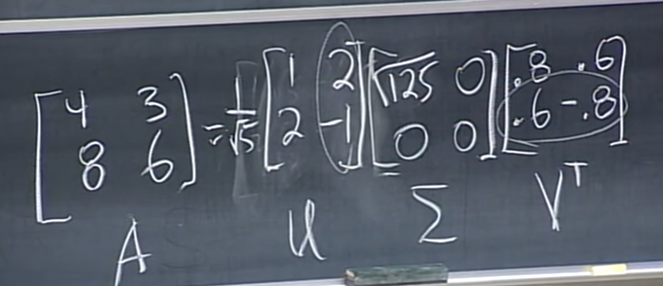 [4 3; 8 6] = 1/√5 [1 2; 2 -1] [√125 0; 0 0] [.8 .6; .6 -.8]
A U Σ V^T